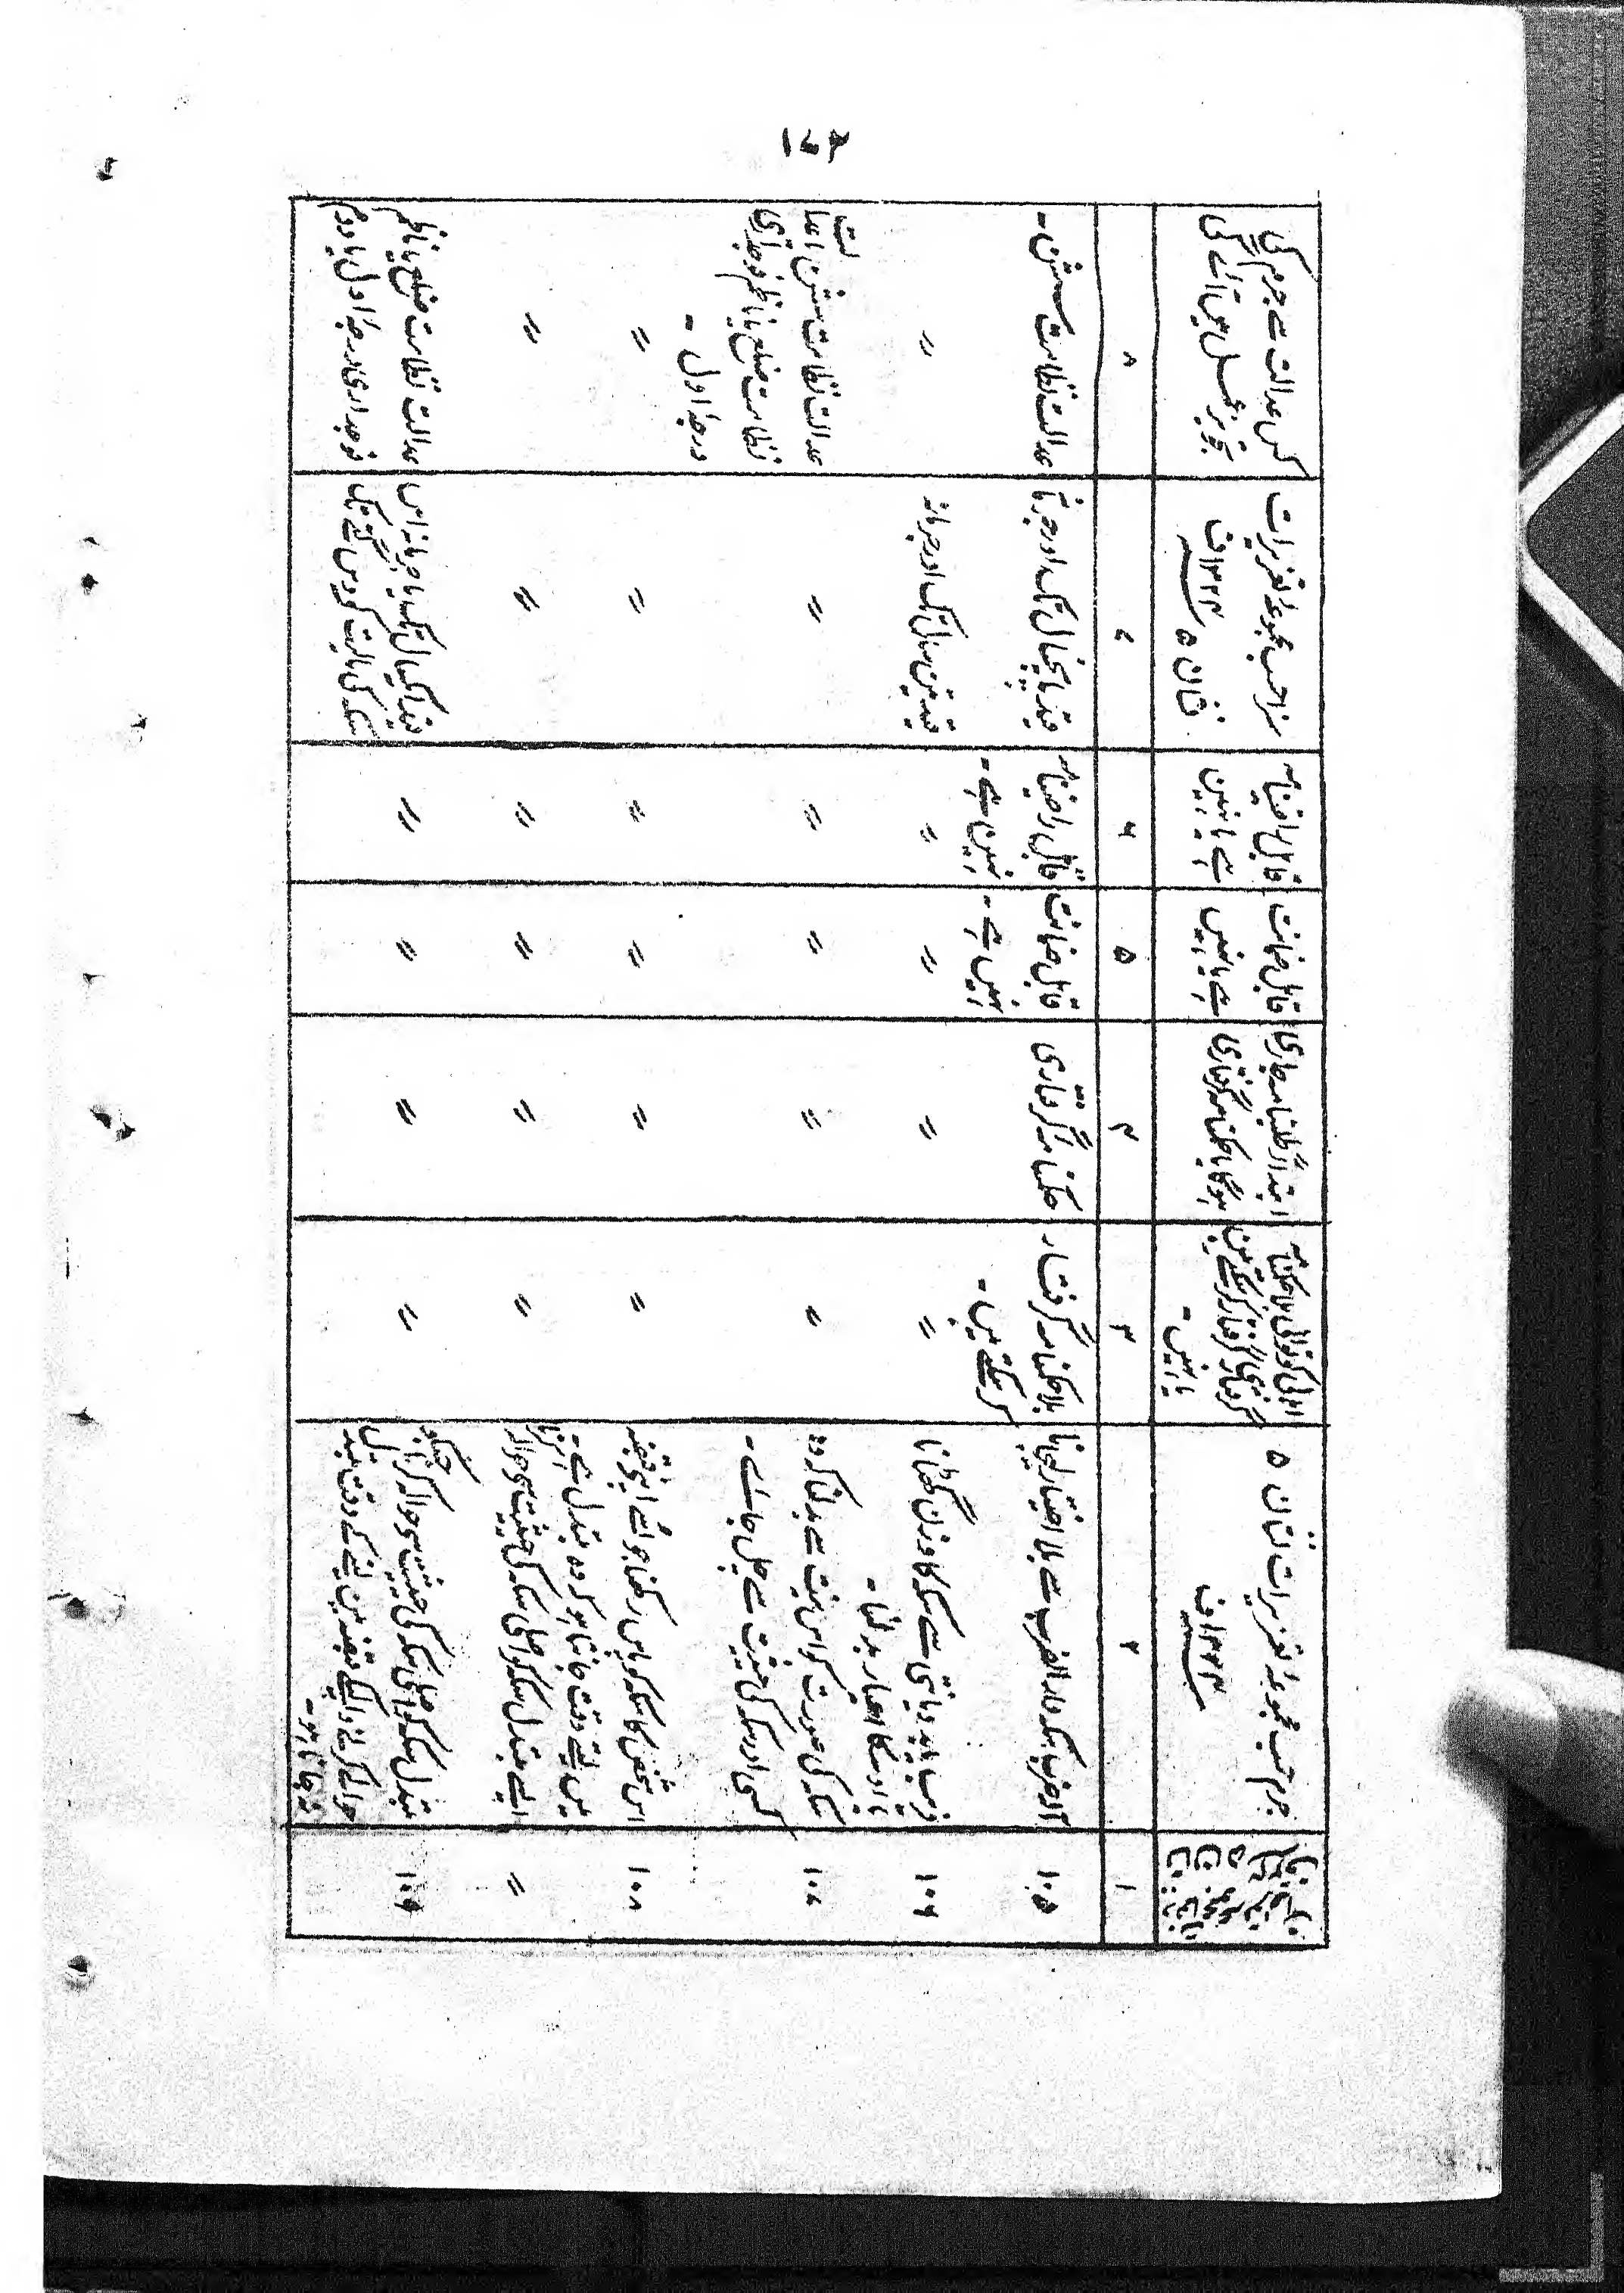 ۱۷۴
جرم حسب مجموعہ تعزیرات نشان ۵
۱۳۲۴ ف
اہالی کوتوالی بلا حکمنامہ
گرفتار کرسکتے ہیں
یا نہیں -
ابتداءً طلبنامہ جاری
ہوگا یا حکمنامہ گرفتاری
قابل ضمانت
ہے یا نہیں
قابل راضینامہ
ہے یا نہیں
سزا حسب مجموعہ تعزیرات
نشان ۵ ۱۳۲۴ ف
کس عدالت سے جرم کی
تجویز عمل میں آئے گی
۱
۲
۳
۴
۵
۶
۷
۸
۱۰۵
آلہ ضرب سکہ دار الضرب سے بلا اختیار لیجانا
بلا حکمنامہ گرفتار
کرسکتے ہیں -
حکمنامہ گرفتاری
قابل ضمانت
نہیں ہے -
قابل راضینامہ
نہیں ہے -
قید پانچسال تک اور جرمانہ
عدالت نظامت سشن -
۱۰۶
فریب یا بد دیانتی سے سکہ کا وزن گھٹانا
یا اوسکا عیار بدلنا -
〃
〃
〃
〃
قید تین سال تک اور جرمانہ
〃
۱۰۷
سکہ کی صورت کو اس نیت سے بدلنا کہ وہ
کسی اور سکہ کی حیثیت سے چل جائے -
〃
〃
〃
〃
〃
عدالت نظامت سشن یا عدالت
نظامت ضلع یا ناظم فوجداری
درجہ اول -
۱۰۸
اس شخص کا سکہ کو پاس رکھنا جو اسے اپنے قبضہ
میں لیتے وقت جانتا ہو کہ وہ مبدل ہے -
〃
〃
〃
〃
〃
〃
〃
ایسے مبدل سکہ کو اصلی سکہ کی حیثیت سے حوالہ کرنا
〃
〃
〃
〃
〃
〃
۱۰۹
مبدل سکہ کو اصلی سکہ کی حیثیت سے حوالہ کرنا جسکو
حوالہ کرنے والے نے قبضہ میں لینے کے وقت مبدل
نہ جانا ہو -
〃
〃
〃
〃
قید ایکسال تک یا جرمانہ اس
سکہ کی مالیت کے دس گنے تک
عدالت نظامت ضلع یا ناظم
فوجداری درجہ اول یا دوم